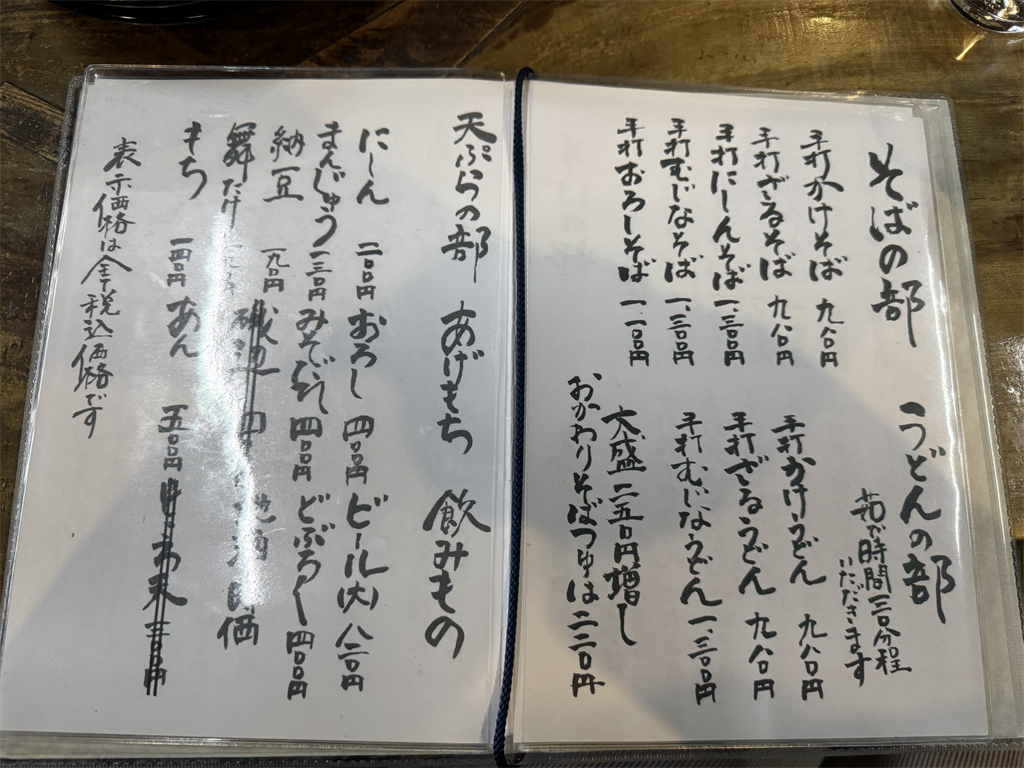 そばの部
手打かけそば 九八〇円
手打ざるそば 九八〇円
手打にしんそば 一、三〇〇円
手打むじなそば 一、三〇〇円
手打おろしそば 一、一〇〇円
うどんの部
茹で時間二〇分程
いただきます
手打かけうどん 九八〇円
手打ざるうどん 九八〇円
手打むじなうどん 一、三〇〇円
大盛二五〇円増し
おかわりそばつゆは二二〇円
天ぷらの部
にしん 二〇〇円
まんじゅう 一三〇円
納豆
舞たけ
もち 一四〇円
あげもち
おろし 四〇〇円
みそだれ 四〇〇円
あん 五〇〇円
飲みもの
ビール(大) 八二〇円
どぶろく 四〇〇円
地酒 時価
表示価格は全て税込価格です